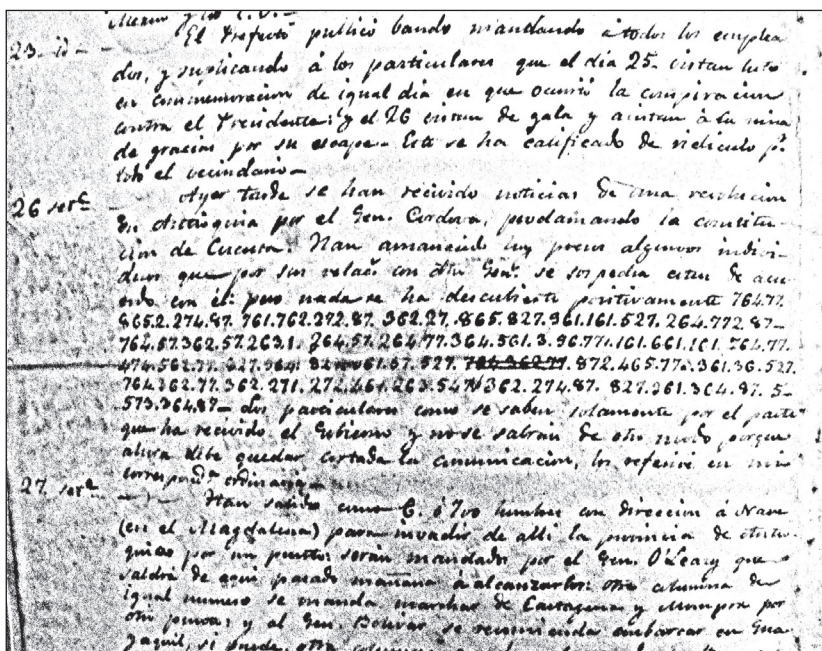 El Prefecto publicó bando mandando á todos los emplea
23. id -
dos, y suplicando á los particulares que el dia 25. vistan luto
en conmemoracion de igual dia en que ocurrió la conspiracion
contra el Presidente: y el 26 vistan de gala y asistan á la misa
de gracias por su escape. Esto se ha calificado de ridiculo p.r
todo el vecindario -
26 set.e -
Ayer tarde se han recivido noticias de una revolucion
en Antioquia por el Gen. Cordova, proclamando la constitu-
cion de Cucuta. Han amanecido hoy presos algunos indivi-
duos que por sus relac.s con dho Gen.l se sospecha esten de acu-
erdo con el: pero nada se ha descubierto positivamente 764.77.
865.2.274.87. 761.762.272.87. 362.27.865.827.361.161.527.264.772.87-
764.57.362.57.263.1. 264.57.264.77.364.561.3.96.77.161.661.161.764.77.
474.562.77. 827.964. 67.527. 872.465.77. 361.36.527.
764.362.77.362.271.272.461.263.547 362.274.87. 827.361.364.87. 5-
573.364.87- Los particulares como se saben solamente por el parte
que ha recivido el Gobierno y no se sabrán de otro modo porque
ahora debe quedar cortada la comunicacion, los referiré en mi
correspond.a ordinaria -
27. set.e -
Han salido como 6. ó 700 hombres con direccion á Nare
(en el Magdalena) para invadir de alli la provincia de Antio-
quia por un punto: serán mandados por el Gen. O'Leary que
saldrá de aqui pasado mañana á alcanzarlos: otra columna de
igual numero se manda marchar de Cartagena y Mompox por
otro punto; y al Gen. Bolivar se recomienda embarcar en Gua-
yaquil, si puede, otra columna